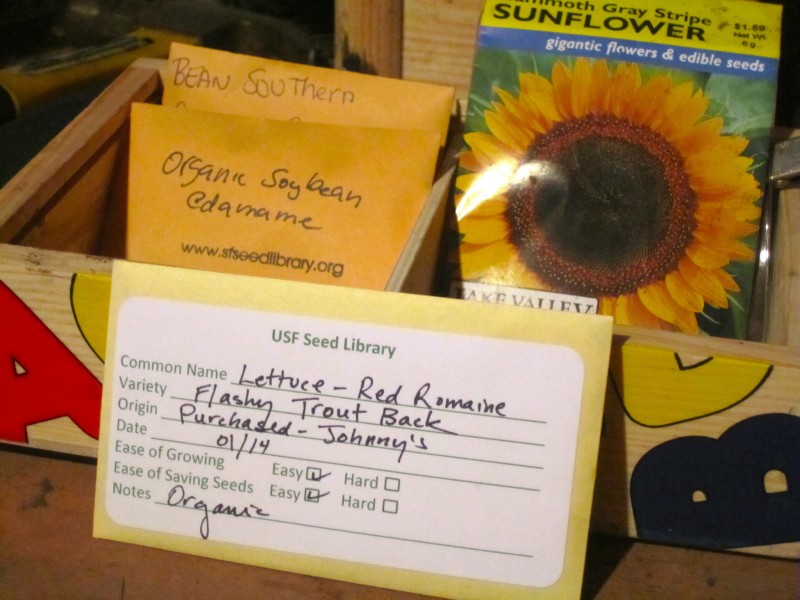 Mammoth Gray Stripe
SUNFLOWER
$1.69
Net Wt.
6 g
gigantic flowers & edible seeds
BEAN SOUThern
Organic Soybean
Edamame
www.sfseedlibrary.org
LAKE VALLEY
USF Seed Library
Common Name Lettuce - Red Romaine
Variety Flashy Trout Back
Origin Purchased - Johnny's
Date 01/14
Ease of Growing Easy Hard
Ease of Saving Seeds Easy Hard
Notes Organic
A
B